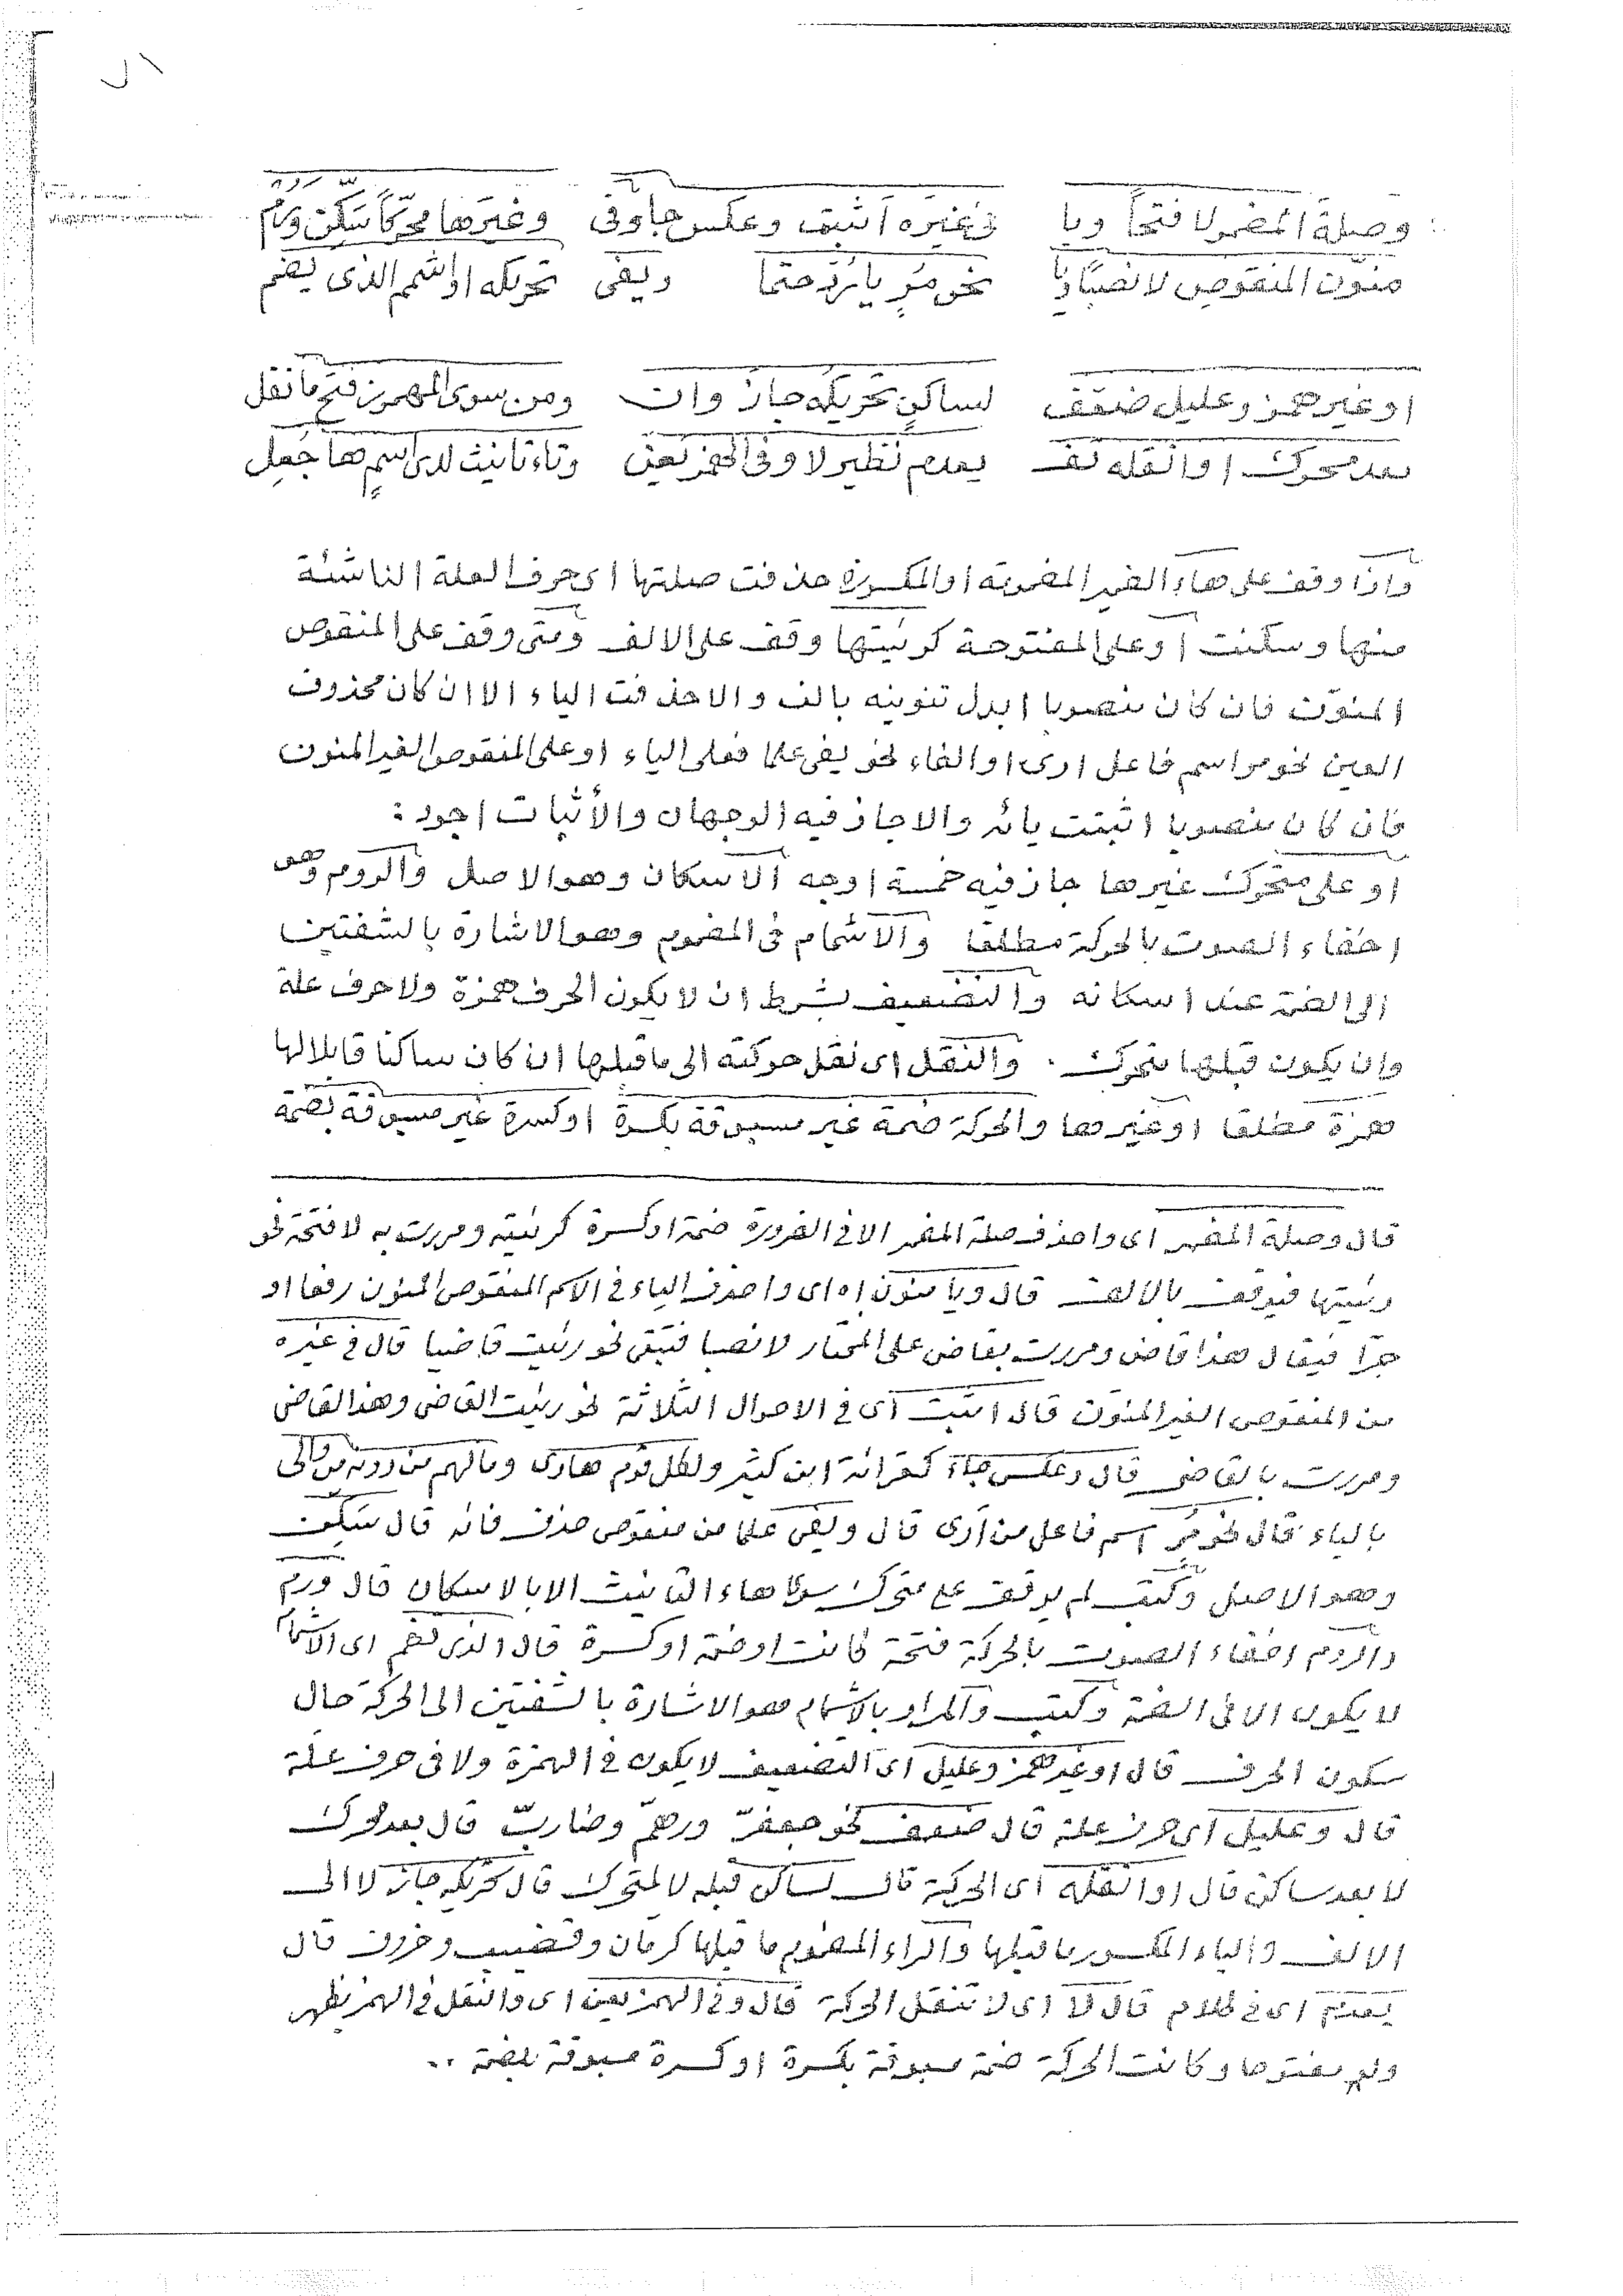 وصلةَ المضمر لا فتحاً ويا    في غيره أثبت وعكس جا وفي    وغيرها محرّكاً سكّن ورُم
منوّن المنقوص لا نصباً وفي    نحو مُرٍ يا زد حتما    ويفي    تحريكه او اشمم الذى يضم
او غير همز وعليل ضعّف    لساكنٍ تحريكه جاز وان    ومن سوى المهموز فتح ما نقل
بعد محرك او انقله تف    يعدم نظير لا وفى الهمز يعن    وتاء تانيث لدى اسمٍ ها جُعِل
واذا وقف على هاء الضمير المضمومة او المكسورة حذفت صلتها اى حرف العلة الناشئة
منها وسكنت او على المفتوحة كرئيتها وقف على الالف ومتى وقف على المنقوص
المنوّن فان كان منصوبا ابدل تنوينه بالف والا حذفت الياء الا ان كان محذوف
العين نحو مر اسم فاعل ارى او الفاء نحو يفى علما فعلى الياء او على المنقوص الغير المنون
فان كان منصوبا اثبتت يائه والا جاز فيه الوجهان والأثبات اجود :
او على متحرك غيرها جاز فيه خمسة اوجه الاسكان وهو الاصل والروم وهو
اخفاء الصوت بالحركة مطلقا والاشمام فى المضموم وهو الاشارة بالشفتين
الى الضمة عند اسكانه والتضعيف بشرط ان لا يكون الحرف همزة ولا حرف علة
وان يكون قبلها متحرك . والنقل اى نقل حركته الى ما قبلها ان كان ساكنا قابلا لها
همزة مطلقا او غيرها والحركة ضمة غير مسبوقة بكسرة او كسرة غير مسبوقة بضمة
قال وصلة المضمر اى واحذف صلة المضمر الا فى الضرورة ضمة او كسرة كرئيته ومررت به لا فتحة نحو
رئيتها فيوقف بالالف قال ويا منون اه اى واحذف الياء فى الاسم المنقوص المنون رفعا او
جرّا فيقال هذا قاض ومررت بقاض على المختار لا نصبا فتبقى نحو رئيت قاضيا قال فى غيره
من المنقوص الغير المنون قال اثبت اى فى الاحوال الثلاثة نحو رئيت القاضى وهذا القاضى
ومررت بالقاضى قال وعكس جاء كقرائة ابن كثير ولكل قوم هادى ومالهم من دونه من والى
بالياء قال نحو مُرٍ اسم فاعل من أرى قال ويفى علما من منقوص حذف فائه قال سَكِّن
وهو الاصل وكتب لم يوقف على متحرك سوى هاء التانيث الا بالاسكان قال ورم
والروم اخفاء الصوت بالحركة فتحة كانت او ضمة او كسرة قال الذى يضم اى الاشمام
لا يكون الا فى الضمة وكتب والمراد بالاشمام هو الاشارة بالشفتين الى الحركة حال
سكون الحرف قال او غير همز وعليل اى التضعيف لا يكون فى الهمزة ولا فى حرف علة
قال وعليل اى حرف علة قال ضعف نحو جعفرّ ودرهمّ وضاربّ قال بعد محرك
لا بعد ساكن قال او انقله اى الحركة قال لساكن قبله لا المتحرك قال تحريكه جاز لا الى
الالف والياء المكسور ما قبلها والواو المضموم ما قبلها كرمان وقضيب وخروف قال
يعدم اى فى كلام قال لا اى لا تنقل الحركة قال وفى الهمز يعن اى والنقل فى الهمز يظهر
ولو مفتوحا وكانت الحركة ضمة مسبوقة بكسرة او كسرة مسبوقة بضمة ..